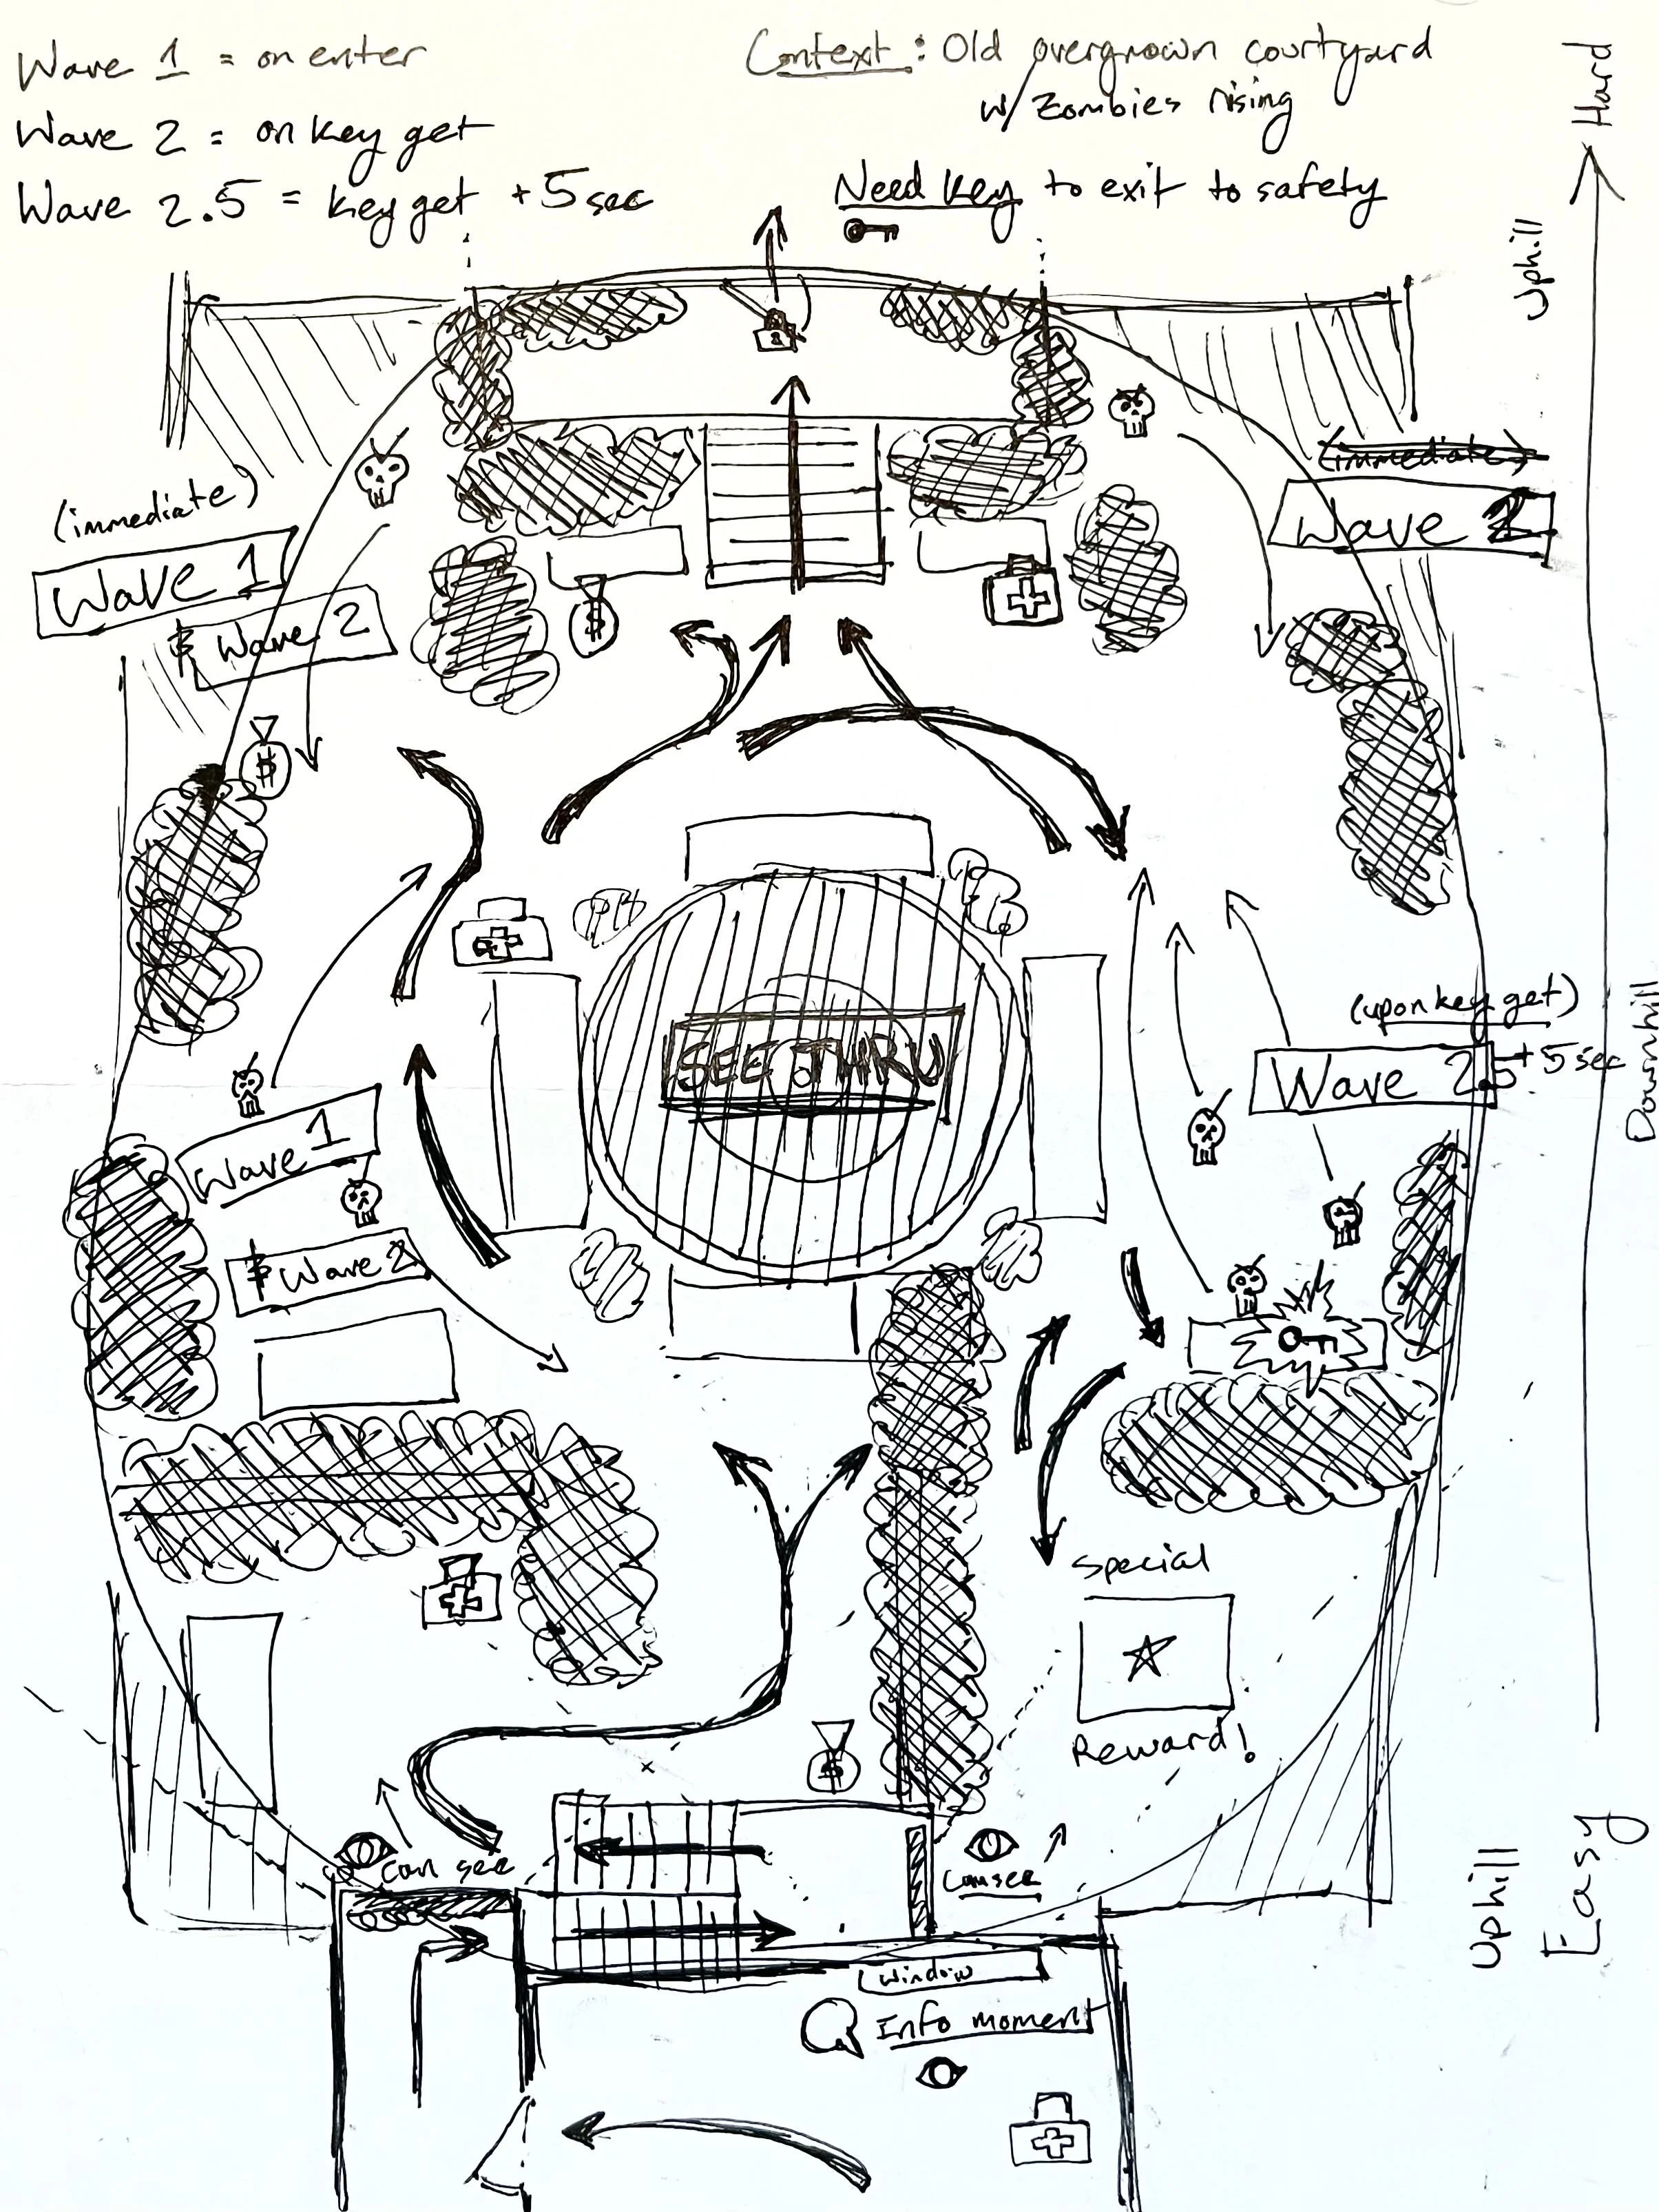 Wave 1 = on enter
Wave 2 = on key get
Wave 2.5 = key get +5 sec
Context: Old overgrown courtyard
w/ Zombies rising
Need Key to exit to safety
Hard
Uphill
(immediate)
(immediate)
Wave 1
Wave 2
Wave 2
$
$
SEE THRU
(upon key get)
Wave 2.5 + 5 sec
Downhill
Wave 1
Wave 2
special
Reward!
$
can see
can see
Uphill
Easy
Window
Info moment